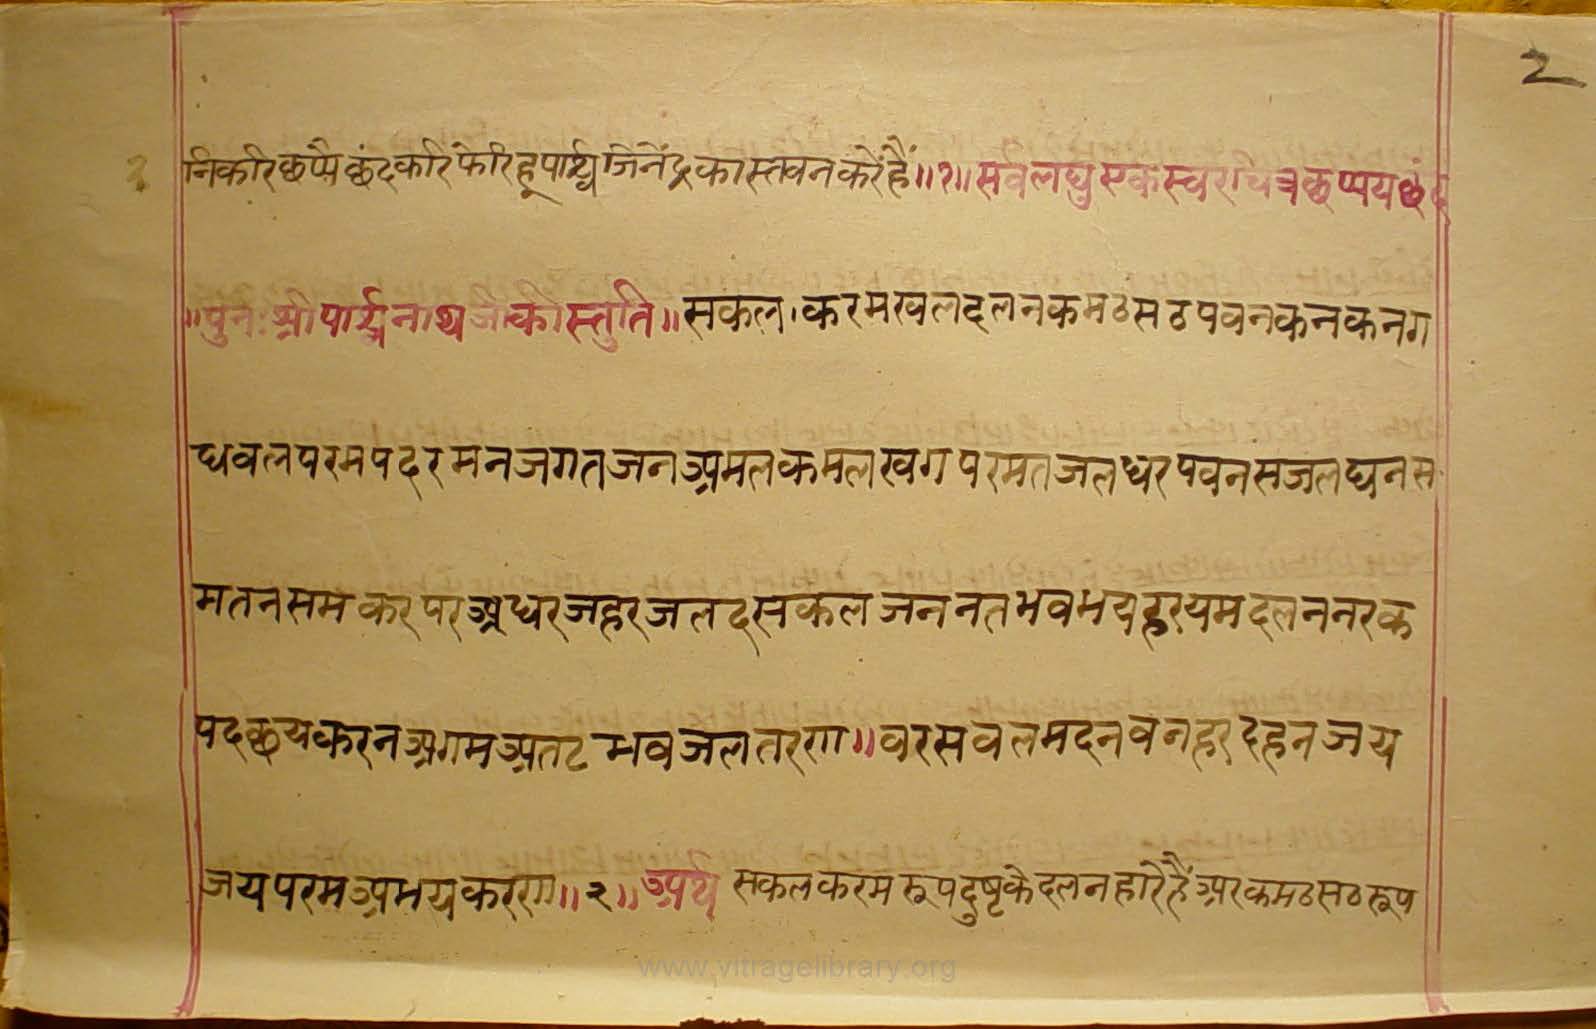 2
निकरि छप्पै छंद करि फेरि हू पार्श्व जिनेंद्र का स्तवन करैं हैं ॥१॥ सर्व लघु एक स्वर चित्र छप्पय छंद
॥ पुनः श्री पार्श्वनाथ जी की स्तुति ॥ सकल । करमखलदलन कमठ सठ पवन कनक नग
धवल परमपद रमन जगत जन अमल कमल खग परमत जलधर पवन सजल घन स
मतन समकर पर अघ रजहर जलद सकल जन नत भव भय हर यमदलन नरक
पद छय करन अगम अतट भवजल तरण ॥ वर सवल मदन वन हर दहन जय
जय परम अभय करण ॥ २ ॥ अर्थ सकल करम रूप दुष्ट के दलन हारे हैं अर कमठ सठ रूप
www.vitragelibrary.org